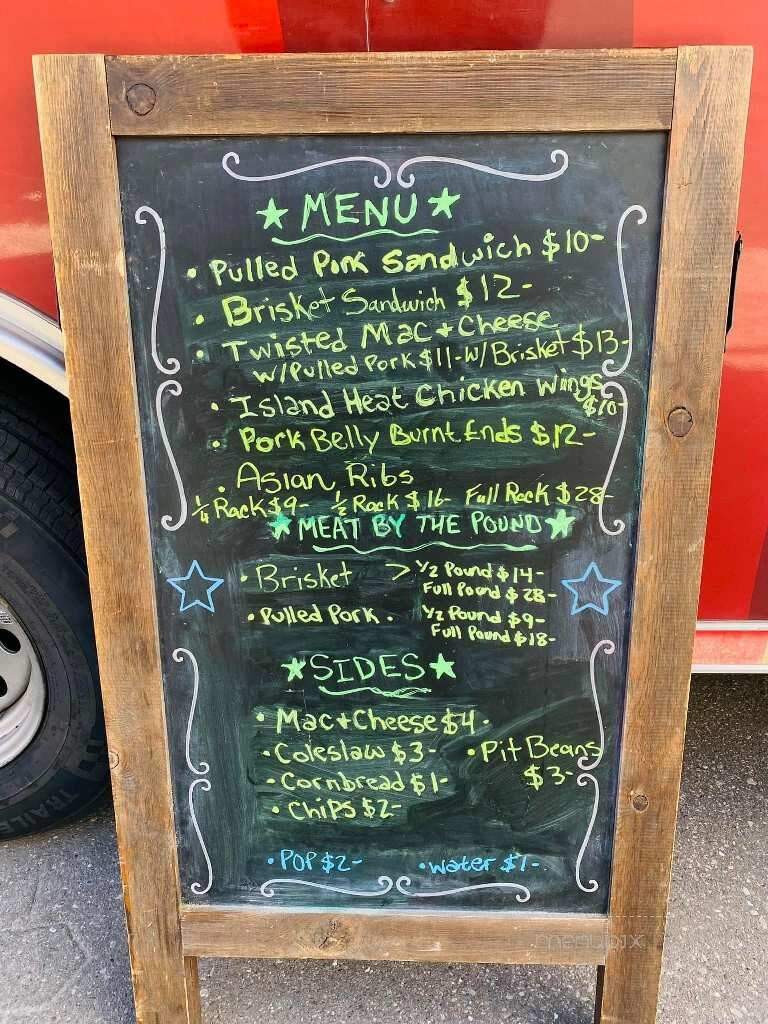 ★ MENU ★
• Pulled Pork Sandwich $10-
• Brisket Sandwich $12-
• Twisted Mac + Cheese
w/Pulled Pork $11- w/ Brisket $13-
• Island Heat Chicken Wings
$10-
• Pork Belly Burnt Ends $12-
• Asian Ribs
1/4 Rack $9- 1/2 Rack $16- Full Rack $28-
★ MEAT BY THE POUND ★
• Brisket > 1/2 Pound $14-
Full Pound $28-
• Pulled Pork. 1/2 Pound $9-
Full Pound $18-
★ SIDES ★
• Mac+Cheese $4-
• Coleslaw $3- • Pit Beans
$3-
• Cornbread $1-
• Chips $2-
• POP $2- • water $1-
menupix
TRAILER